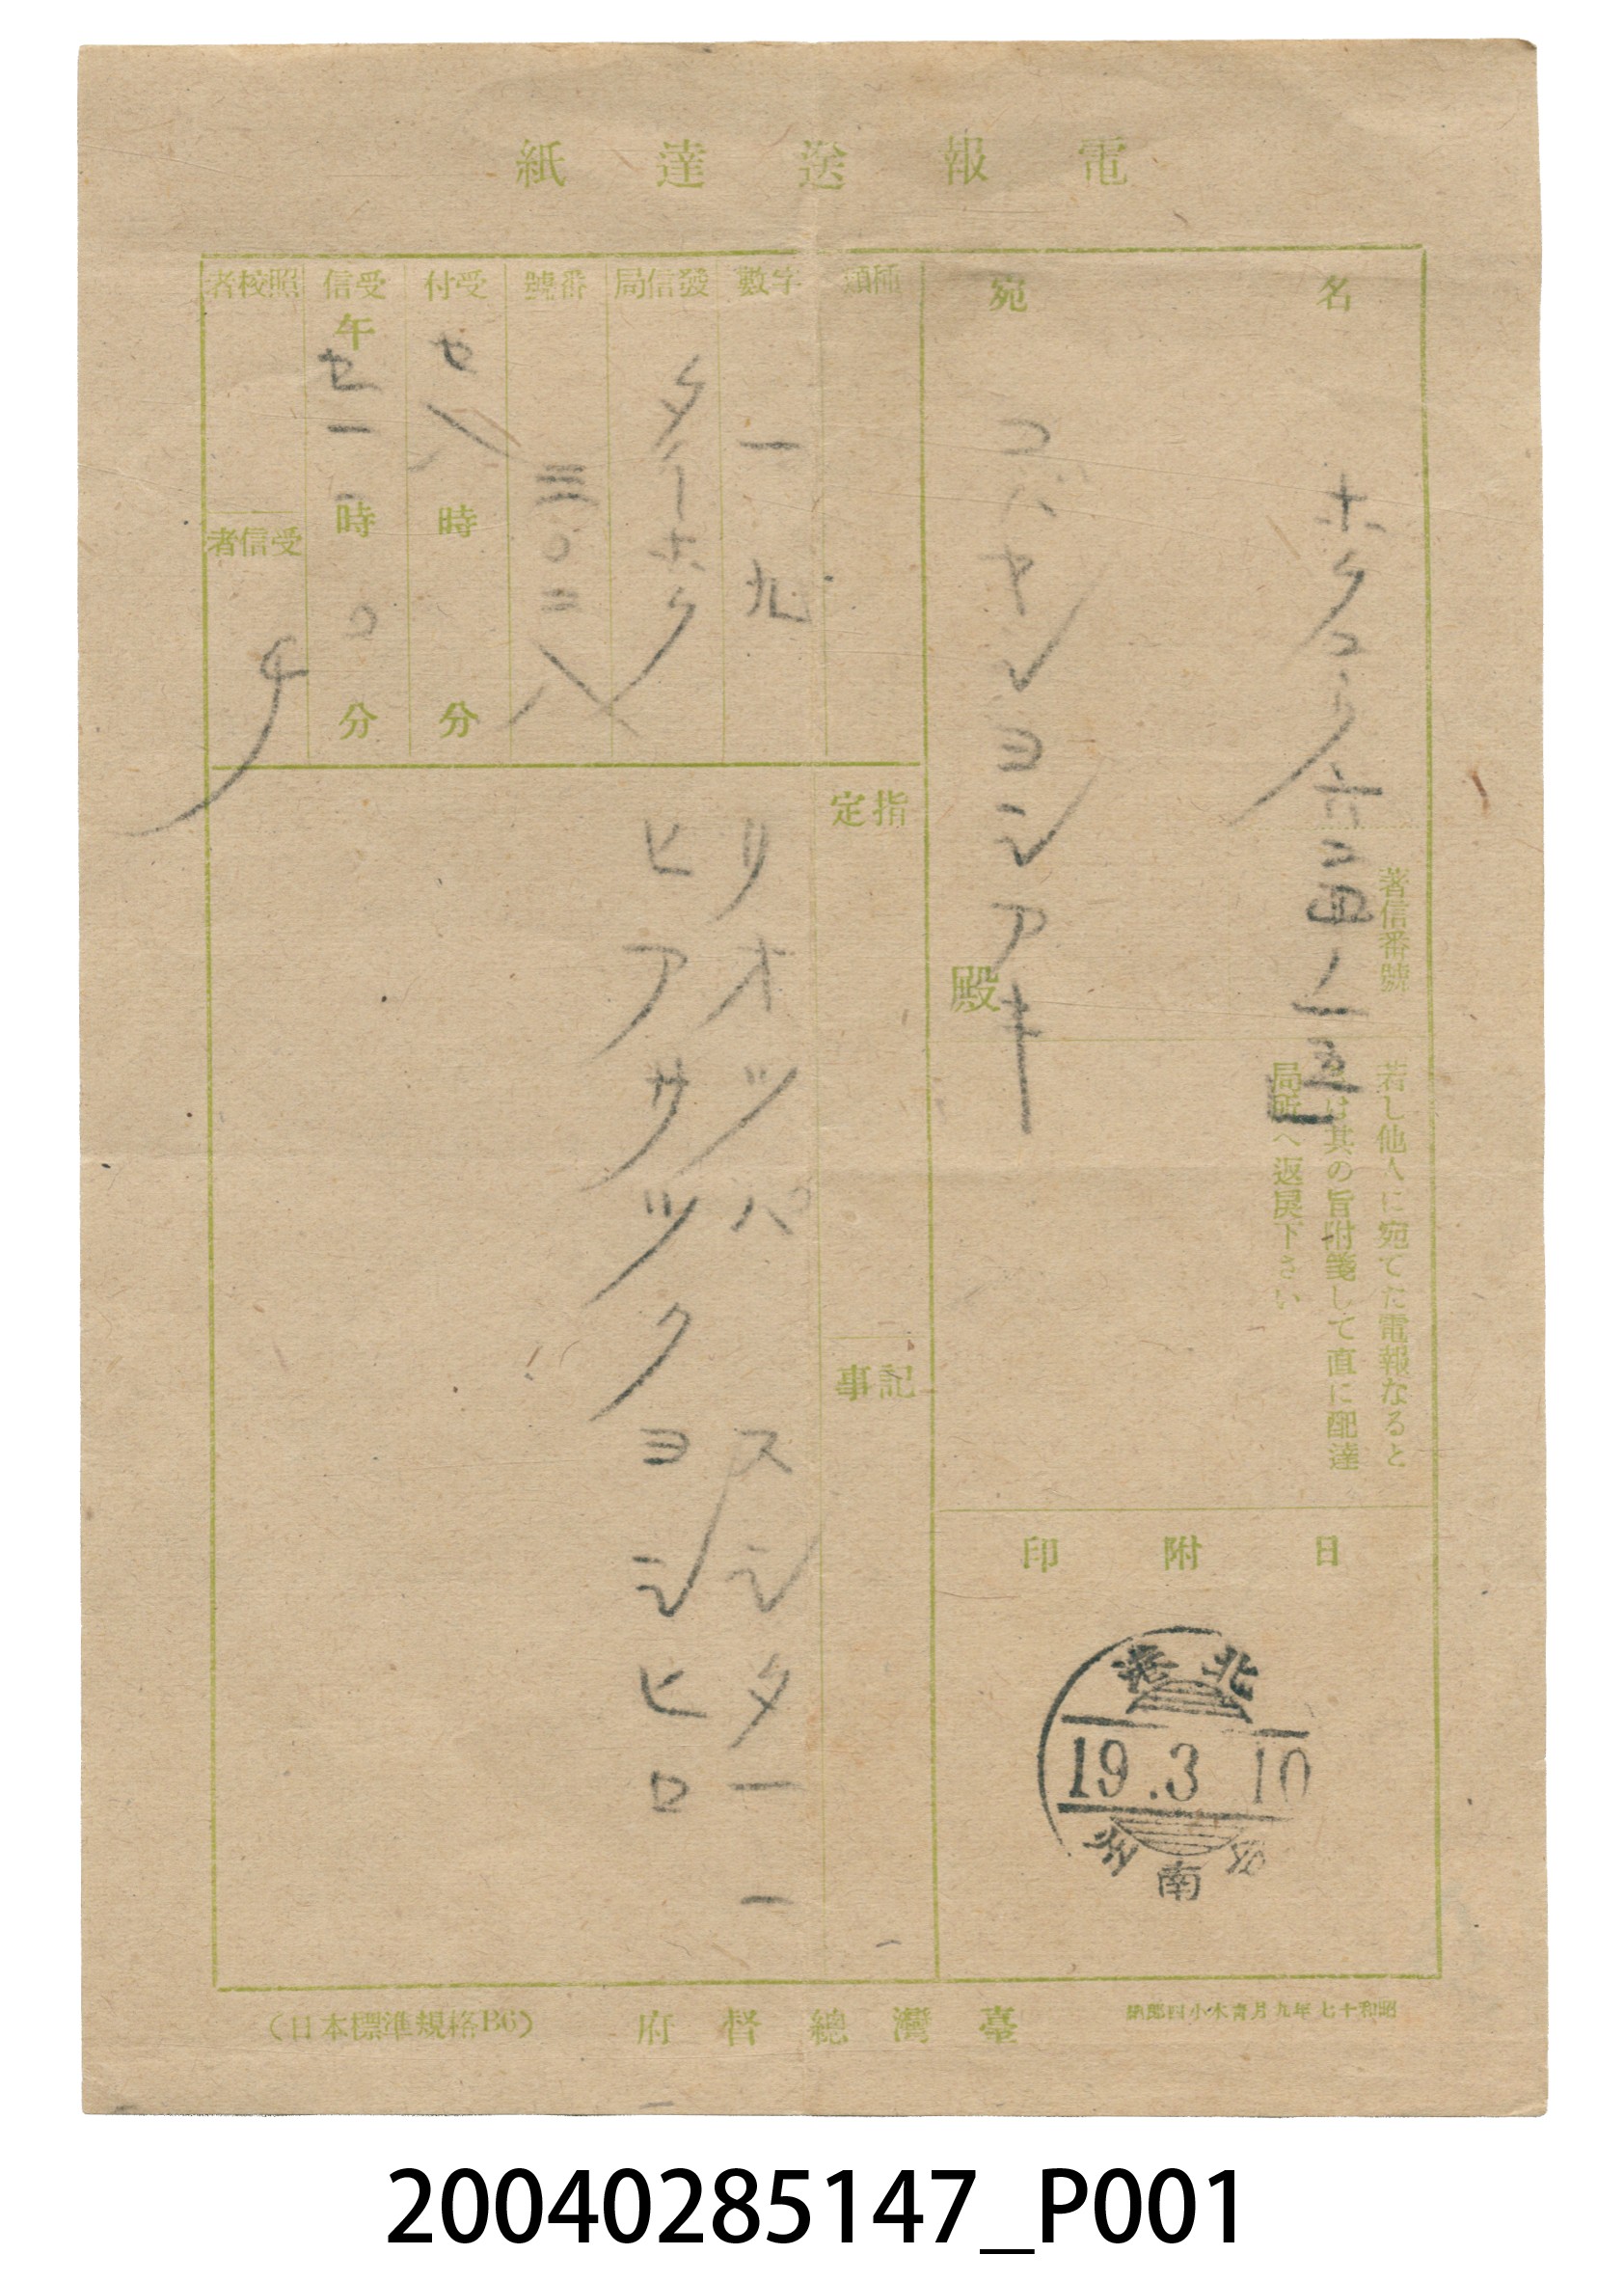 電報送達紙
名宛
ホクコウ六二四ノ一五
コバヤシヨシアキ
殿
著信番號
若し他人に宛てた電報なると
は其の旨附箋して直に配達
局所へ返戻下さい
日附印
北港
19.3 10
台南
種類
字數
一九
發信局
タイホク
番號
三〇二八
受付
セ八
時
分
受信
午
セ一
時
〇
分
照校者
受信者
チ
指定
記事
リオツパ スシター一
ヒアサツクヨシヒロ
昭和十七年九月青木小四郎納
臺灣總督府
(日本標準規格B6)
20040285147_P001